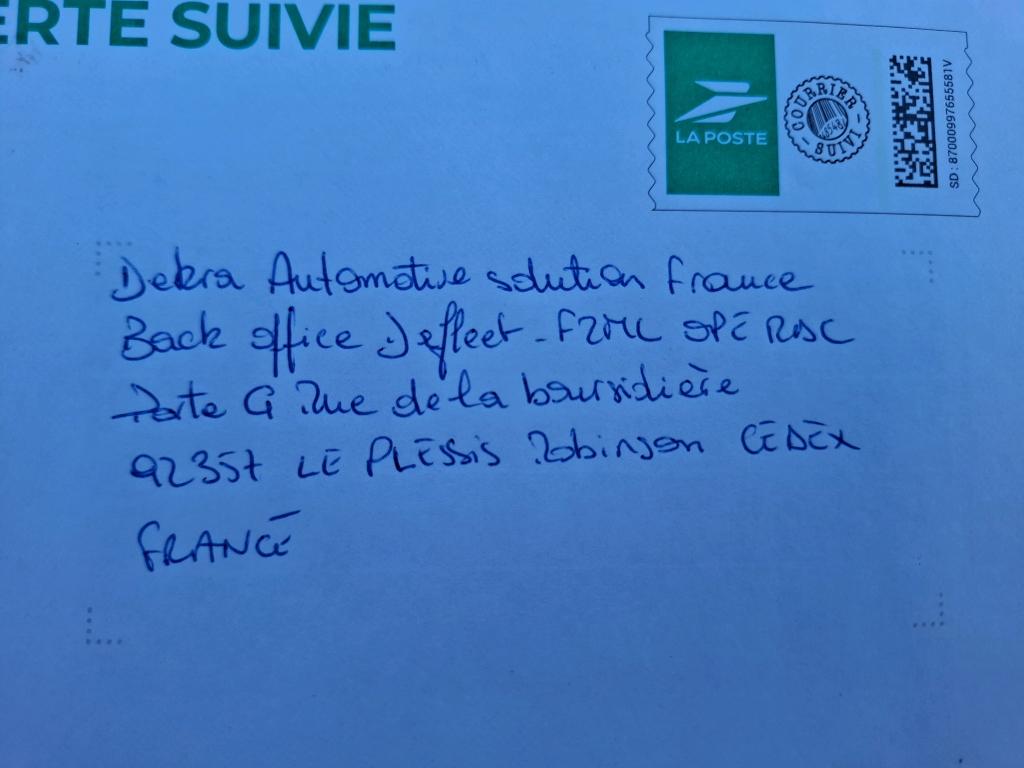 ERTE SUIVIE
LA POSTE
COURRIER SUIVI
SD : 87000997655581V
Dekra Automotive solution France
Back office Defleet - F2ML OPE RDSC
Porte G Rue de la boursidière
92357 LE PLESSIS Robinson CEDEX
FRANCE